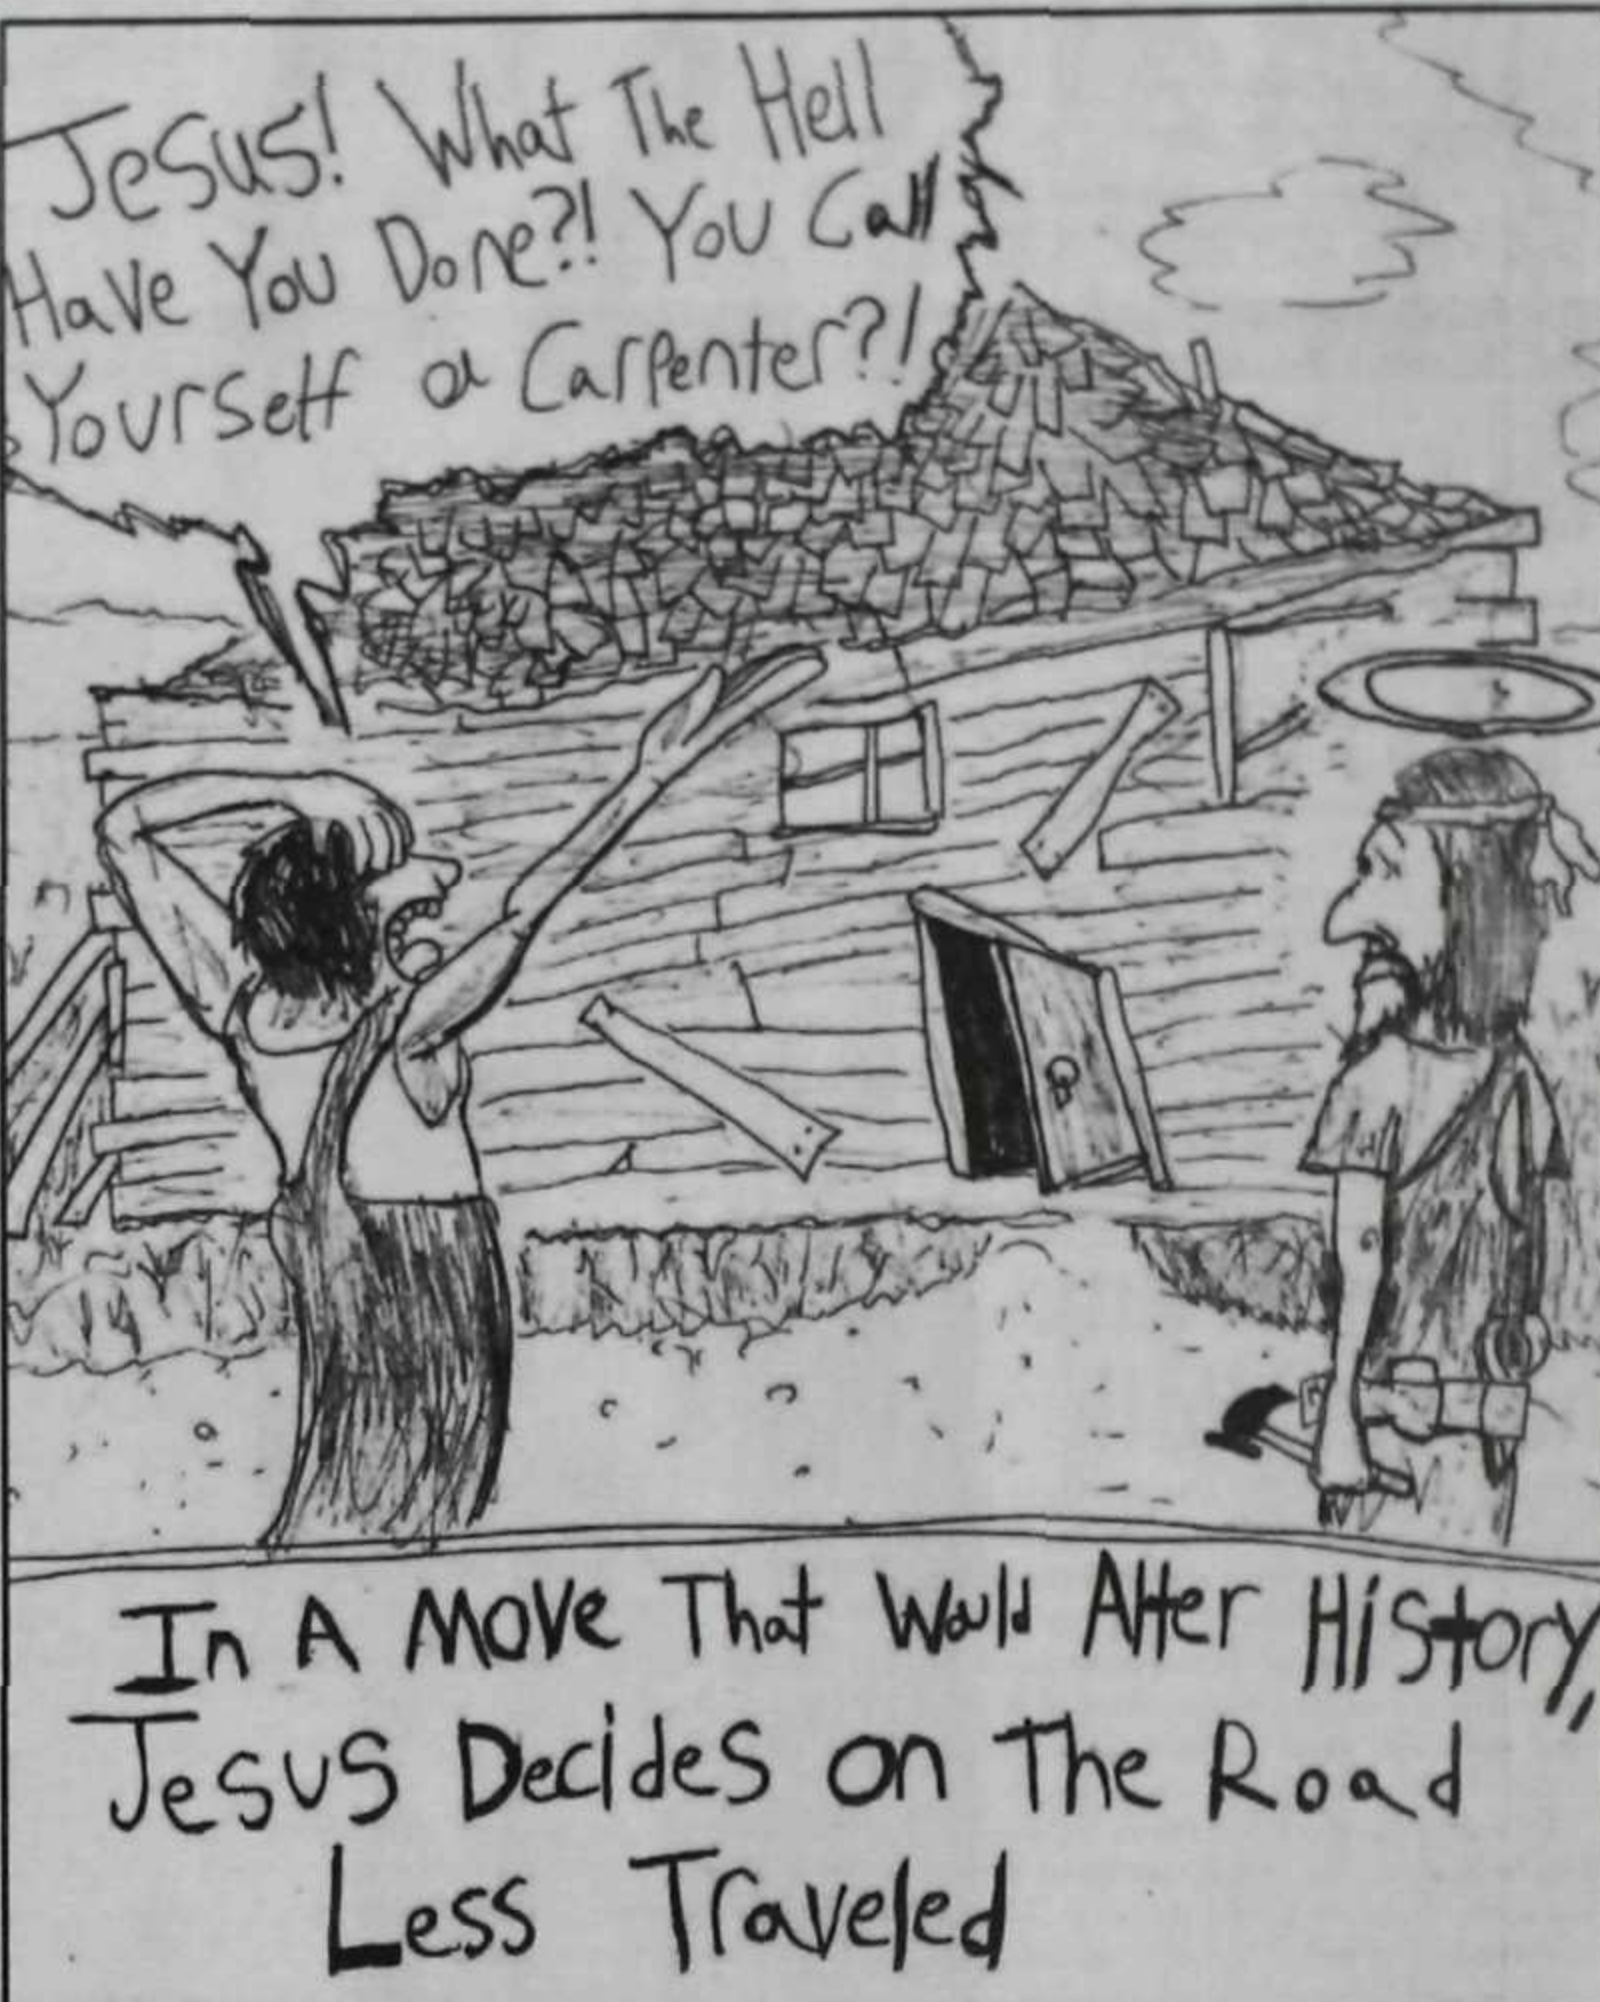 Jesus! What The Hell
Have You Done?! You Call
Yourself a Carpenter?!
In A Move That Would Alter History,
Jesus Decides on The Road
Less Traveled